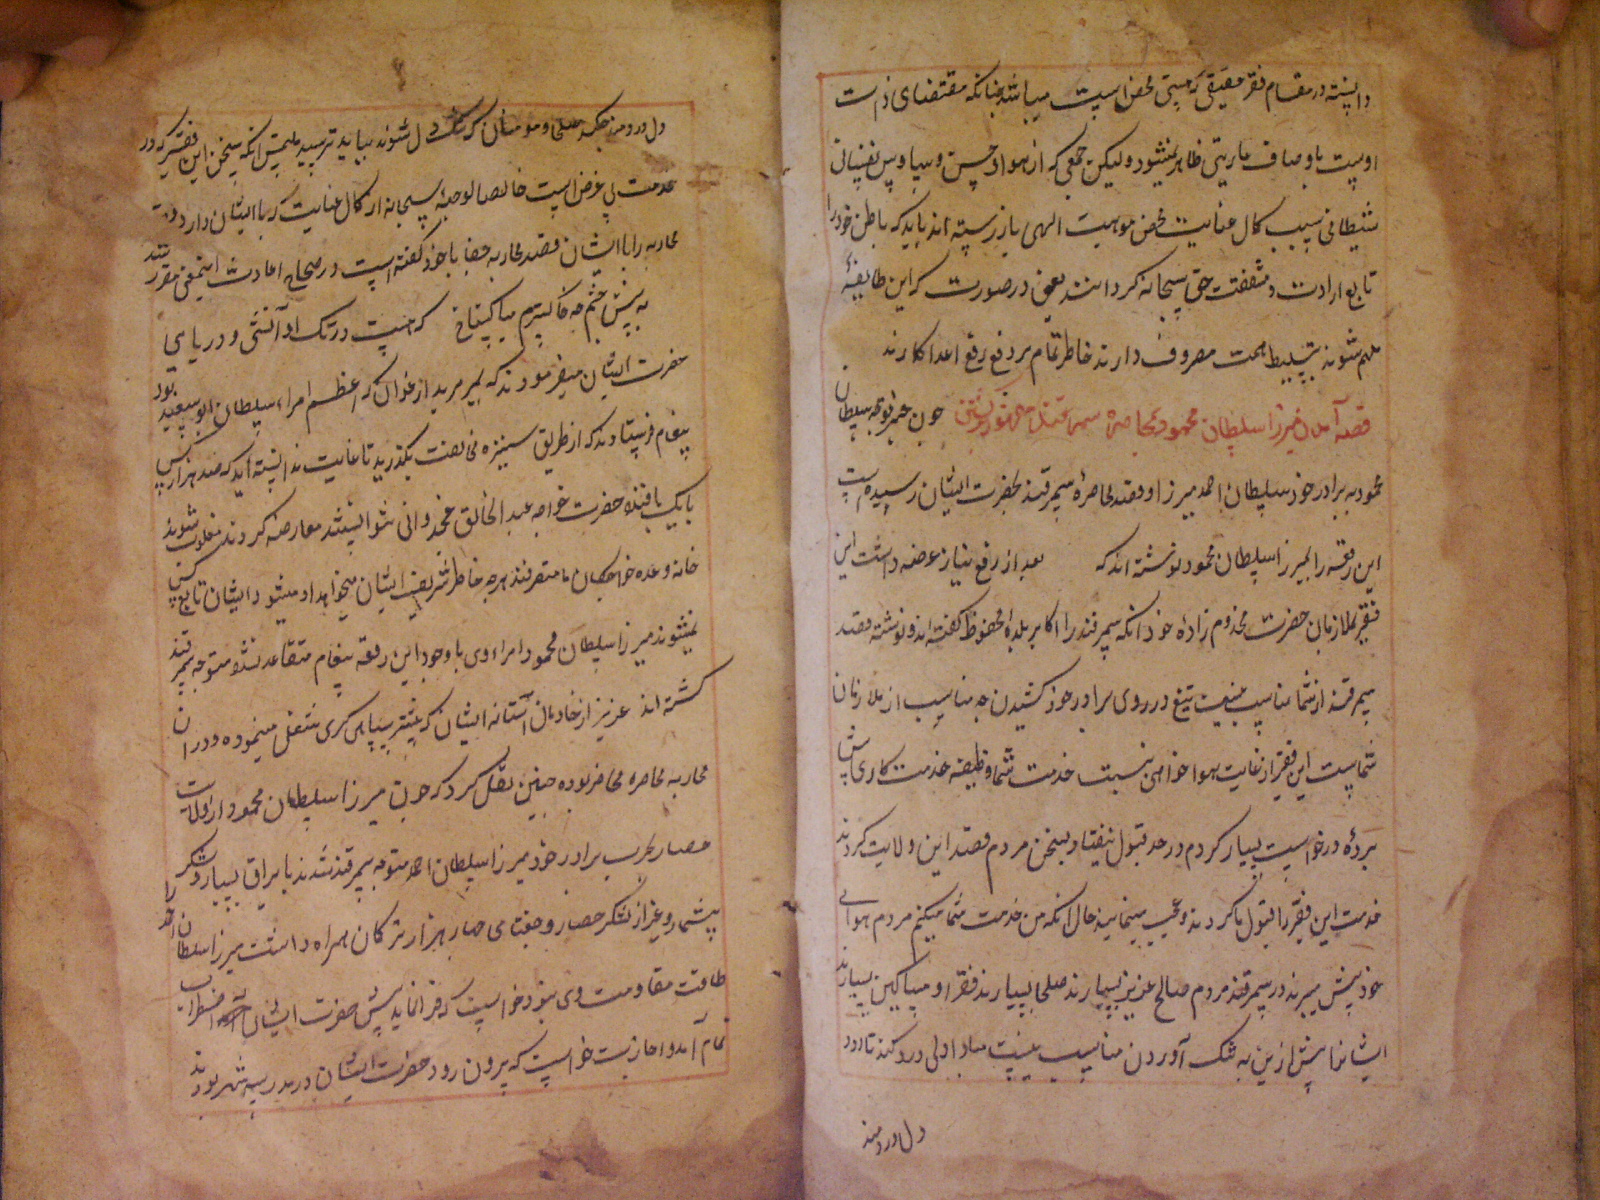 دانسته در مقام فقر حقیقی که نیستی محض است میباشد چنانکه مقتضای ذات
اوست باوصاف عاریتی ظاهر نمیشود ولیکن جمعی که از هواجس و وساوس نفسانی
شیطانی بسبب کمال عنایت محض موهبت الهی باز رسته اند باید که باطن خود را
تابع ارادت و شفقت حق سبحانه گردانند یعنی در صورت که این طایفهٔ
ملهم شوند بتسلیط همت مصروف دارند خاطر تمام بر دفع رفع اعدا کارند
قصه آمدن میرزا سلطان محمود بمحاصرهٔ سمرقند چون خبر توجه سلطان
محمود به برادر خود سلطان احمد میرزا و قصد محاصرهٔ سمرقند بحضرت ایشان رسیده است
این رقعه را بمیرزا سلطان محمود نوشته اند که بعد از رفع نیاز عرضه داشت این
فقیر بملازمان حضرت مخدوم زادهٔ خود آنکه سمرقند را اکابر بلدهٔ محفوظ گفته اند و نوشته قصد
سمرقند از شما مناسب نیست تیغ در روی برادر خود کشیدن چه مناسب از ملازمان
شماست این فقیر از غایت هوا خواهی نسبت خدمت شما وظیفه خدمت کاری شما
بردهٔ درخواست بسیار کردم در حد قبول نیفتاد بسخن مردم قصد این ولایت کردند
خدمت این فقیر را قبول ناکردند و عیب مینمایند حال آنکه من خدمت شما میکنم مردم هوای
خود پیش میبرند در سمرقند مردم صالح عزیز بسیارند صلحا بسیارند فقرا و مساکین بسیارند
ایشانرا بیش ازین به تنگ آوردن مناسب نیست مبادا دلی درد کند تا درد
دل دردمند
دل دردمند چکند صلحا و مومنان که تنگ دل شوند بباید ترسید ملتمس آنکه سخن این فقیر که در
خدمت بی غرض است خالصا لوجه سبحانه از کمال عنایت که با ایشان دارد دوست
محاربه را با ایشان قصد محاربه جفا با خود گفته است در صحاح احادیث اینمعنی مقرر شد
به پیش چشم چه خاکسترم میا گستاخ که هست در تک او آتشی و دریایی
حضرت ایشان میفرمودند که بمیر مرید ارغوان که اعظم امراء سلطان ابو سعید بود
پیغام فرستادند که از طریق ستیزه مخالفت بگذرید تا غایت ندانسته اید که صد هزار کس
با یک بافنده حضرت خواجه عبد الخالق غجدوانی نتوانستند معارضه کردند مغلوب شوند
خانه وعده خواجگان ما متصرفند هر چه خاطر شریف ایشان میخواهد او میشود ایشان تابع کس
نمیشوند میرزا سلطان محمود و امراء وی با وجود این رقعه پیغام متقاعد نشده متوجه سمرقند
گشته اند عزیز از خادمان آستانه ایشان که پیشتر بسپاهی گری شغل مینموده و در آن
محاربه محاصره حاضر بوده چنین نقل کرد که چون میرزا سلطان محمود از ولایت
حصار بحرب برادر خود میرزا سلطان احمد متوجه سمرقند شدند با یراق بسیار و لشکر
بیشمار و غیر از لشکر حصار و جغتای چهار هزار ترکان همراه داشت میرزا سلطان احمد را
طاقت مقاومت وی نبود خواست که فرار نماید پیش حضرت ایشان اضطراب
تمام آمد و اجازت خواست که بیرون رود حضرت ایشان در مدرسه شهر بودند